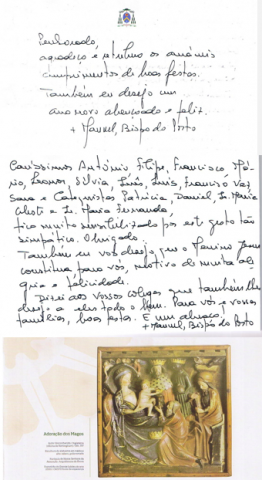 Penhorado,
agradeço e retribuo os amáveis
cumprimentos de boas festas.
Também eu desejo um
ano novo abençoado e feliz.
+ Manuel, Bispo do Porto
Caríssimos António Filipe, Francisco
Sílvia, Inês, Luís, Francisco Vaz
Sara e Catequistas Patrícia, Daniel, Ir. Maria
e Ir. Maria Fernanda
Fico muito sensibilizado por este gesto tão
simpático. Obrigado.
Também eu vos desejo que o Menino Jesus
constitua para vós, motivo de muita ale
gria e felicidade.
Dizei aos vossos colegas que também lhes
desejo a eles todo o bem. Para vós e vossas
famílias, boas festas. E um abraço.
+ Manuel, Bispo do Porto
Adoração dos Magos